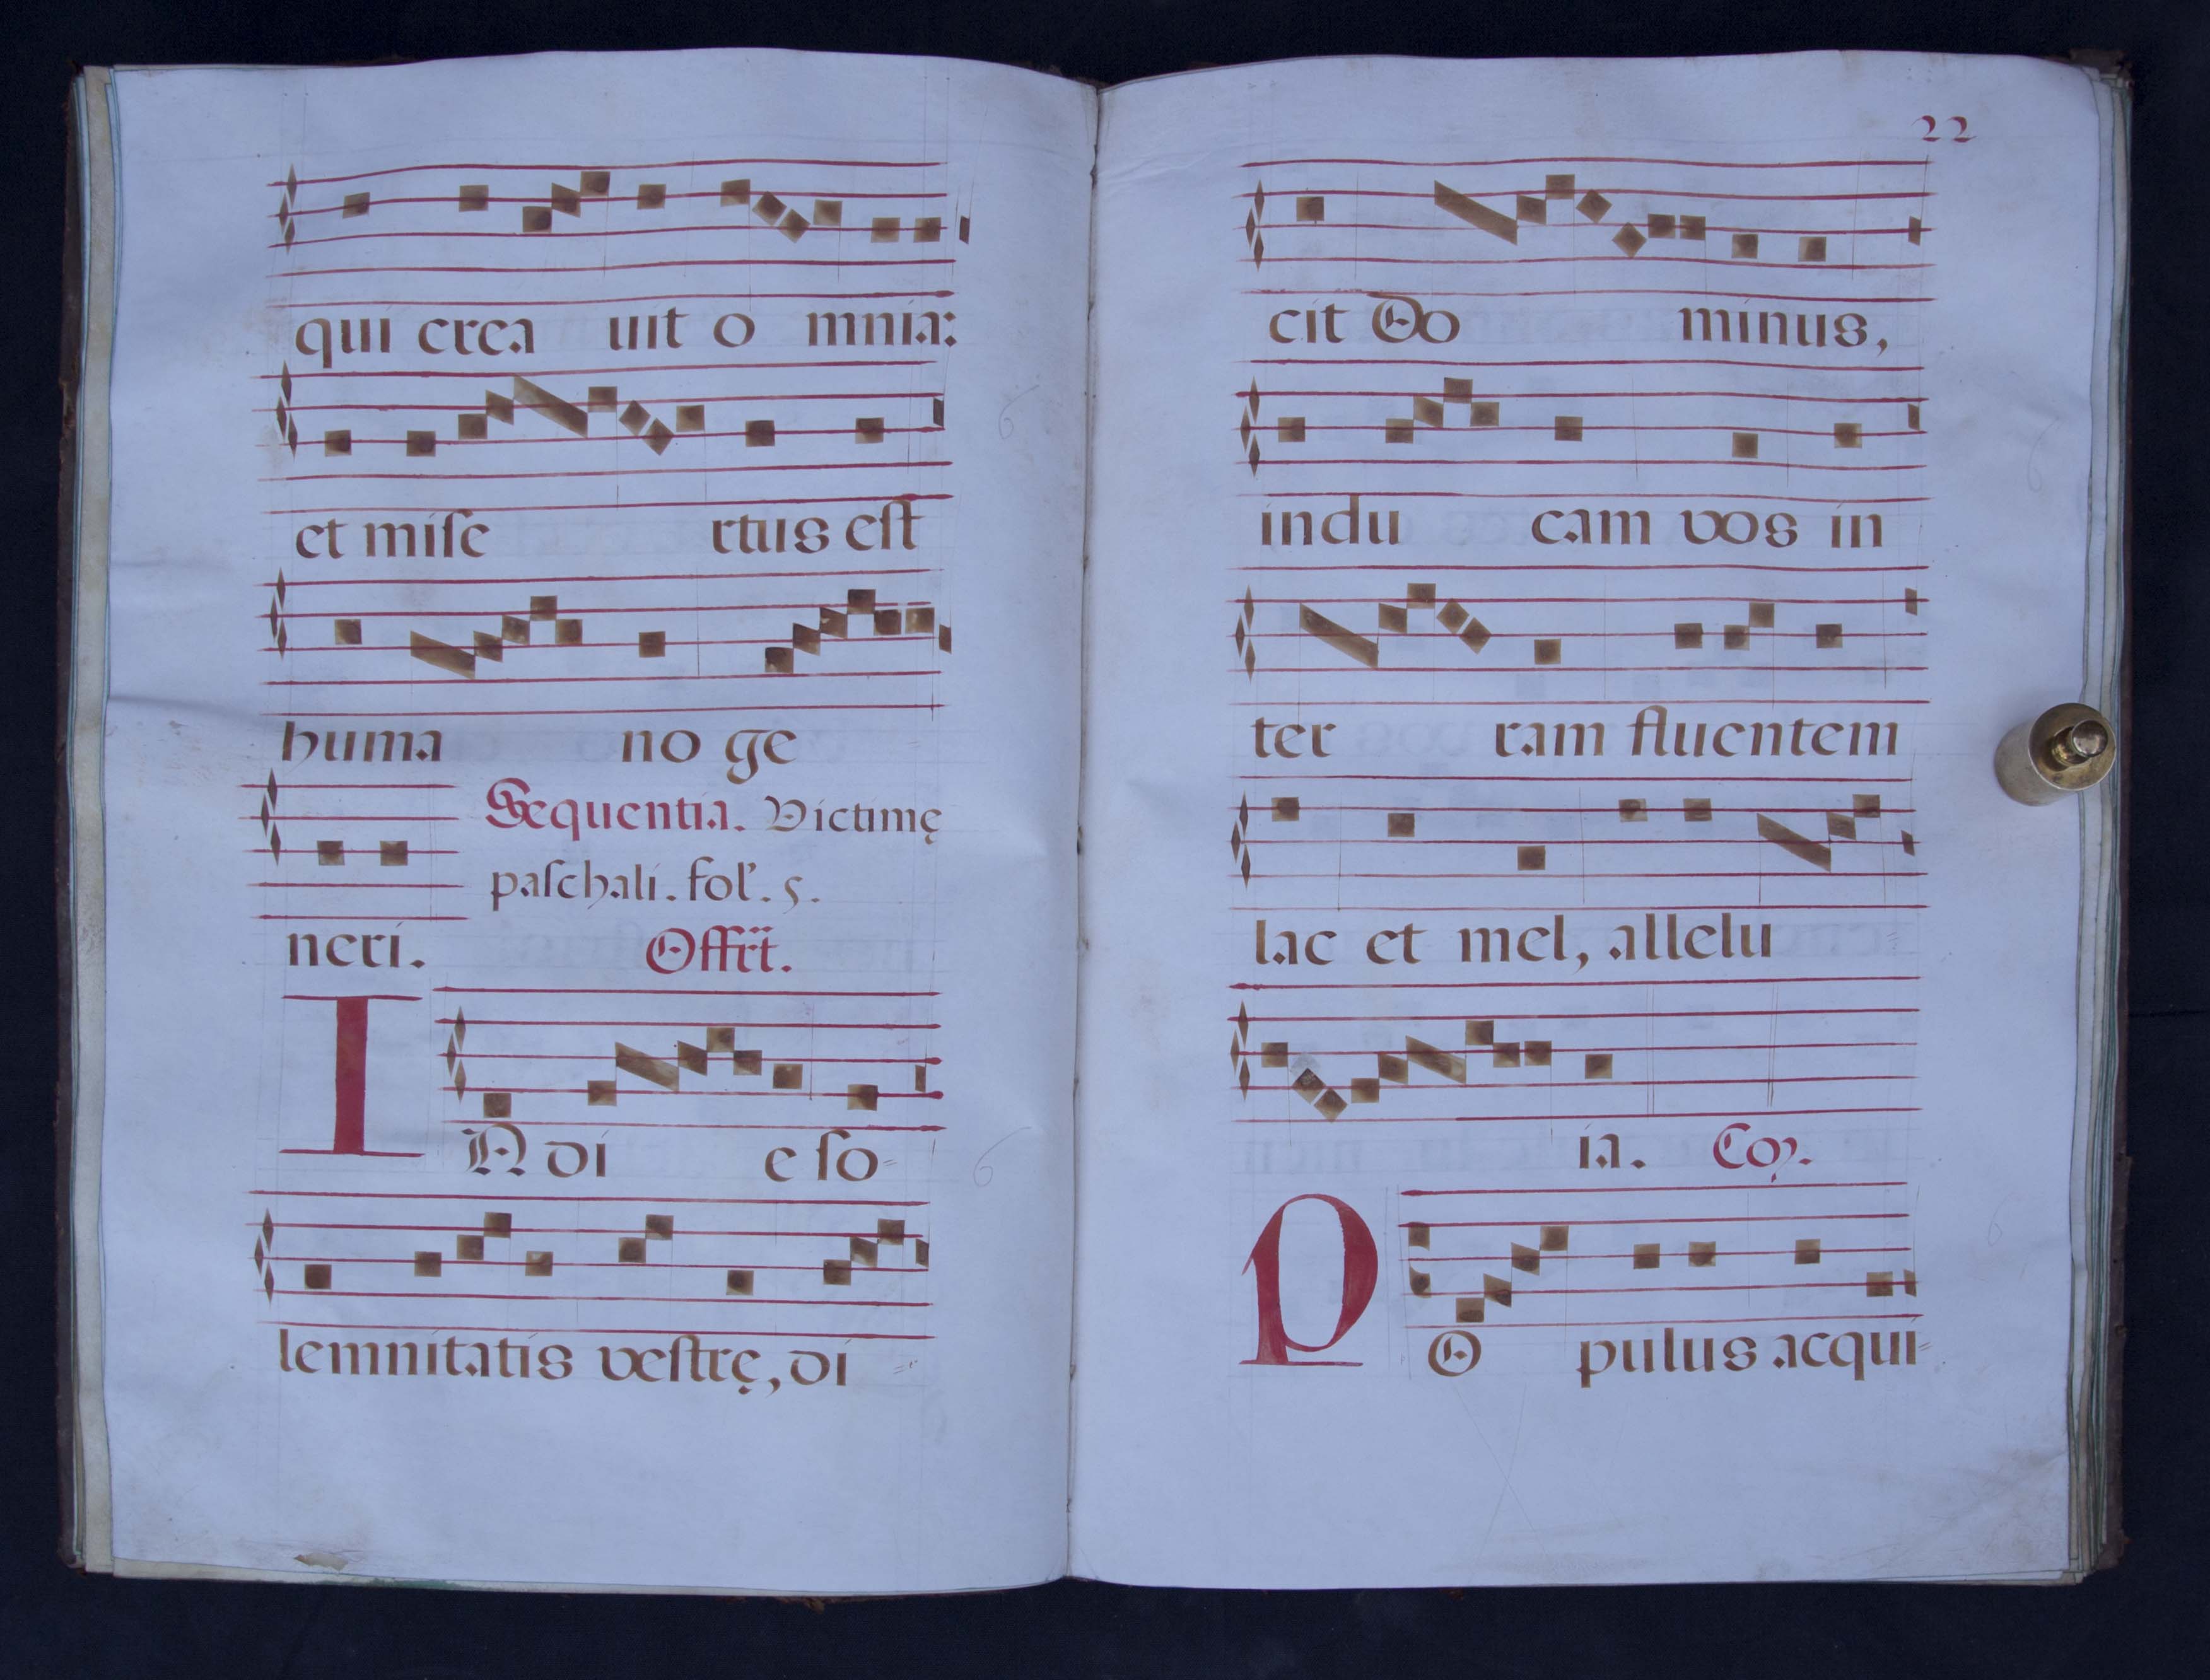 qui crea uit o mnia:
et miſe rtus eſt
huma no ge
Sequentia. Victimę
paſchali. fol. 5.
neri. Offrt.
IN di e ſo=
lemnitatis veſtrę, di=
22
cit Do minus,
indu cam vos in
ter ram fluentem
lac et mel, allelu=
ia. Co.
PO pulus acqui=